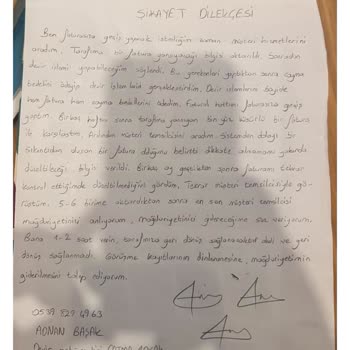 ŞİKAYET DİLEKÇESİ
Ben faturasıza geçiş yapmak istediğim zaman müşteri hizmetlerini
aradım. Tarafıma bir fatura yansıyacağı bilgisi aktarıldı. Sonrasında
devir işlemi yapabileceğim söylendi. Bu gerekenleri yaptıktan sonra cayma
bedelsiz devir işlemlerini gerçekleştirdim. Devir işlemlerini sayede
hem fatura hem cayma bedellerini ödedim. Faturalı hattımı faturasıza geçiş
yaptım. Birkaç hafta sonra tarafıma yansıyan bin küsürlü bir fatura
ile karşılaştım. Ardından müşteri temsilcisini aradım. Sistemden dolayı bir
sıkıntıdan oluşan bir fatura olduğunu belirtti dikkate almamamı yakında
düzelteceği bilgisi verildi. Birkaç ay geçtikten sonra faturamı tekrar
kontrol ettiğimde düzeltilmediğini gördüm. Tekrar müşteri temsilcisiyle gö-
rüştüm. 5-6 birime aktardıktan sonra en son müşteri temsilcisi
mağduriyetinizi anlıyorum, mağduriyetinizi gidereceğime söz veriyorum.
Bana 1-2 saat verin, tarafınıza geri dönüş sağlanacaktır dedi ve geri
dönüş sağlanmadı. Görüşme kayıtlarının dinlenmesine, mağduriyetimin
giderilmesini talep ediyorum.
0539 827 4963
ADNAN BAŞAK